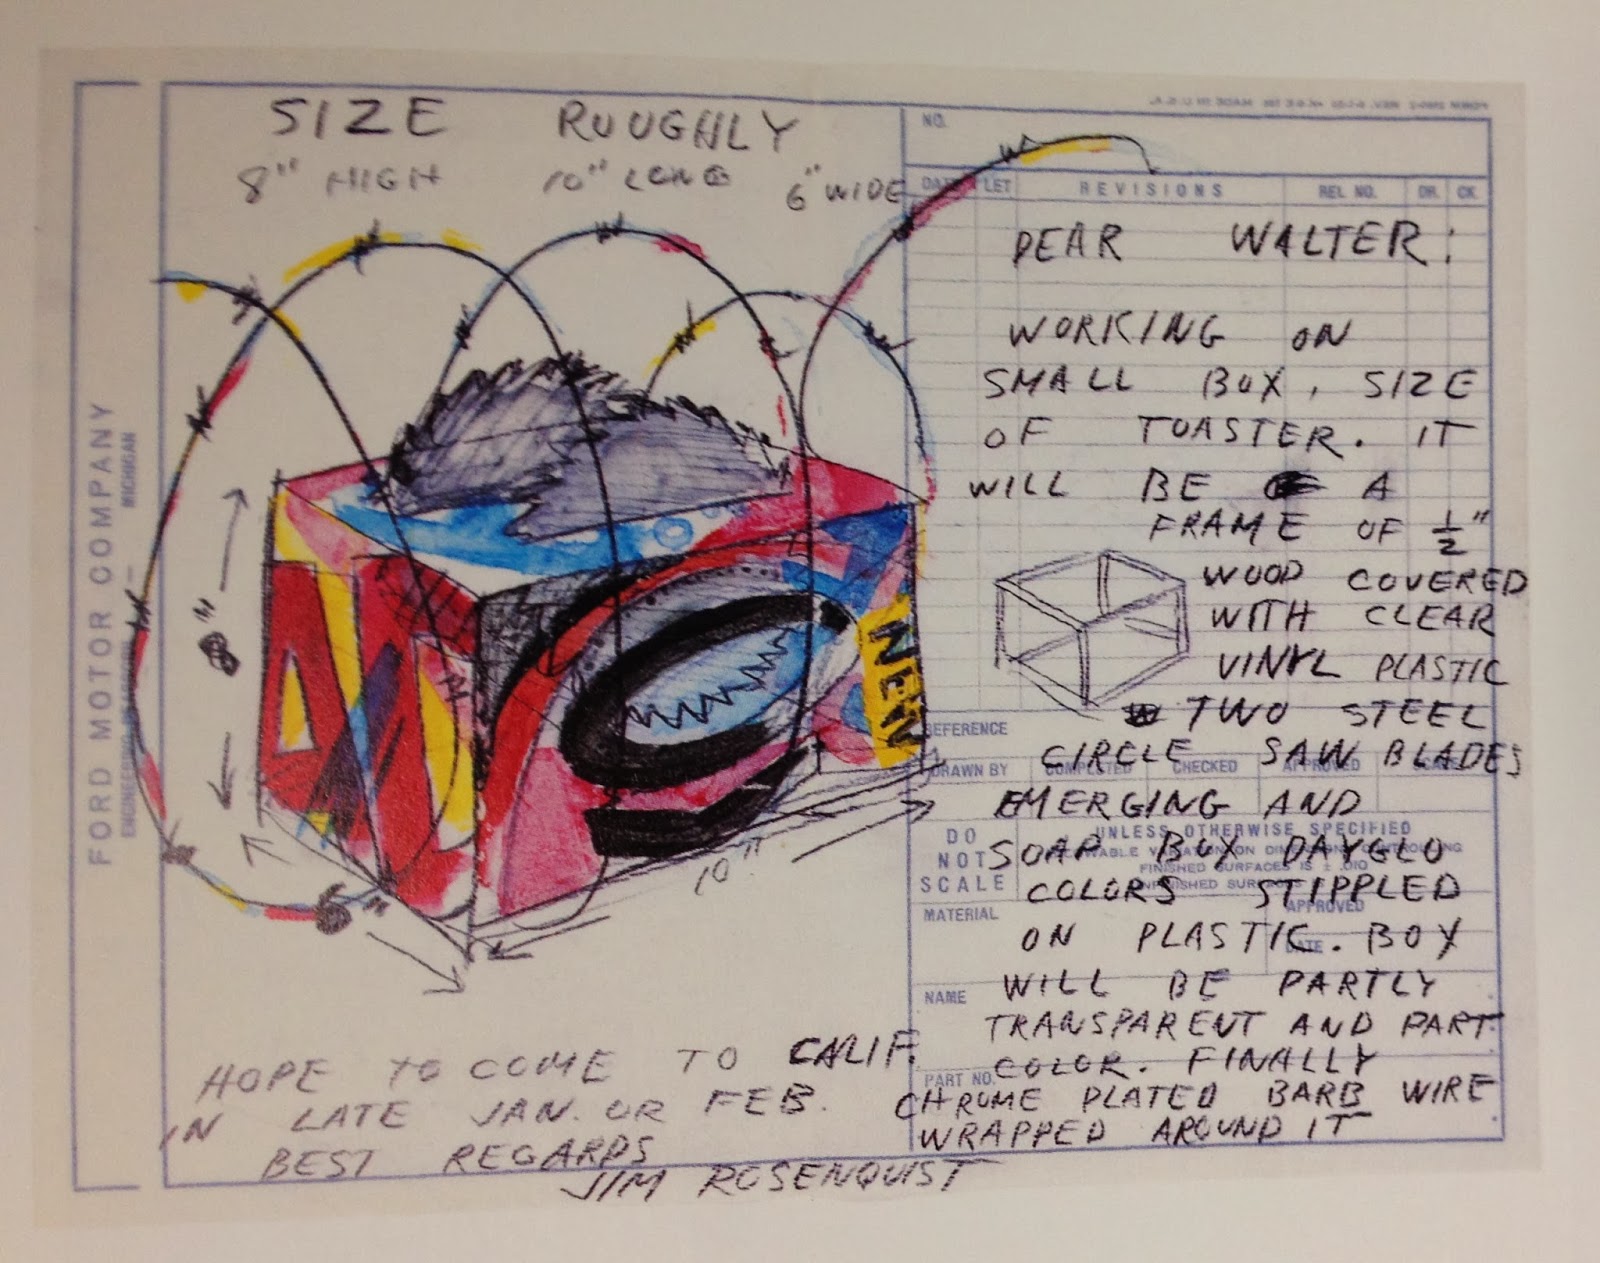 FORD MOTOR COMPANY
MICHIGAN
NO.
DATE LET REVISIONS REL NO. DR. CK.
SIZE ROUGHLY
8" HIGH 10" LONG 6" WIDE
8"
NEW
10"
6"
DEAR WALTER:
WORKING ON
SMALL BOX, SIZE
OF TOASTER. IT
WILL BE A
FRAME OF 1/2"
WOOD COVERED
WITH CLEAR
VINYL PLASTIC
TWO STEEL
CIRCLE SAW BLADES
EMERGING AND
SOAP BOX DAYGLO
COLORS STIPPLED
ON PLASTIC. BOX
WILL BE PARTLY
TRANSPARENT AND PART
COLOR. FINALLY
CHROME PLATED BARB WIRE
WRAPPED AROUND IT
HOPE TO COME TO CALIF.
IN LATE JAN. OR FEB.
BEST REGARDS
JIM ROSENQUIST
REFERENCE
DRAWN BY COMPLETED CHECKED APPROVED
DO NOT SCALE
UNLESS OTHERWISE SPECIFIED
FINISHED SURFACES IS ± .010
MATERIAL
APPROVED
DATE
NAME
PART NO.